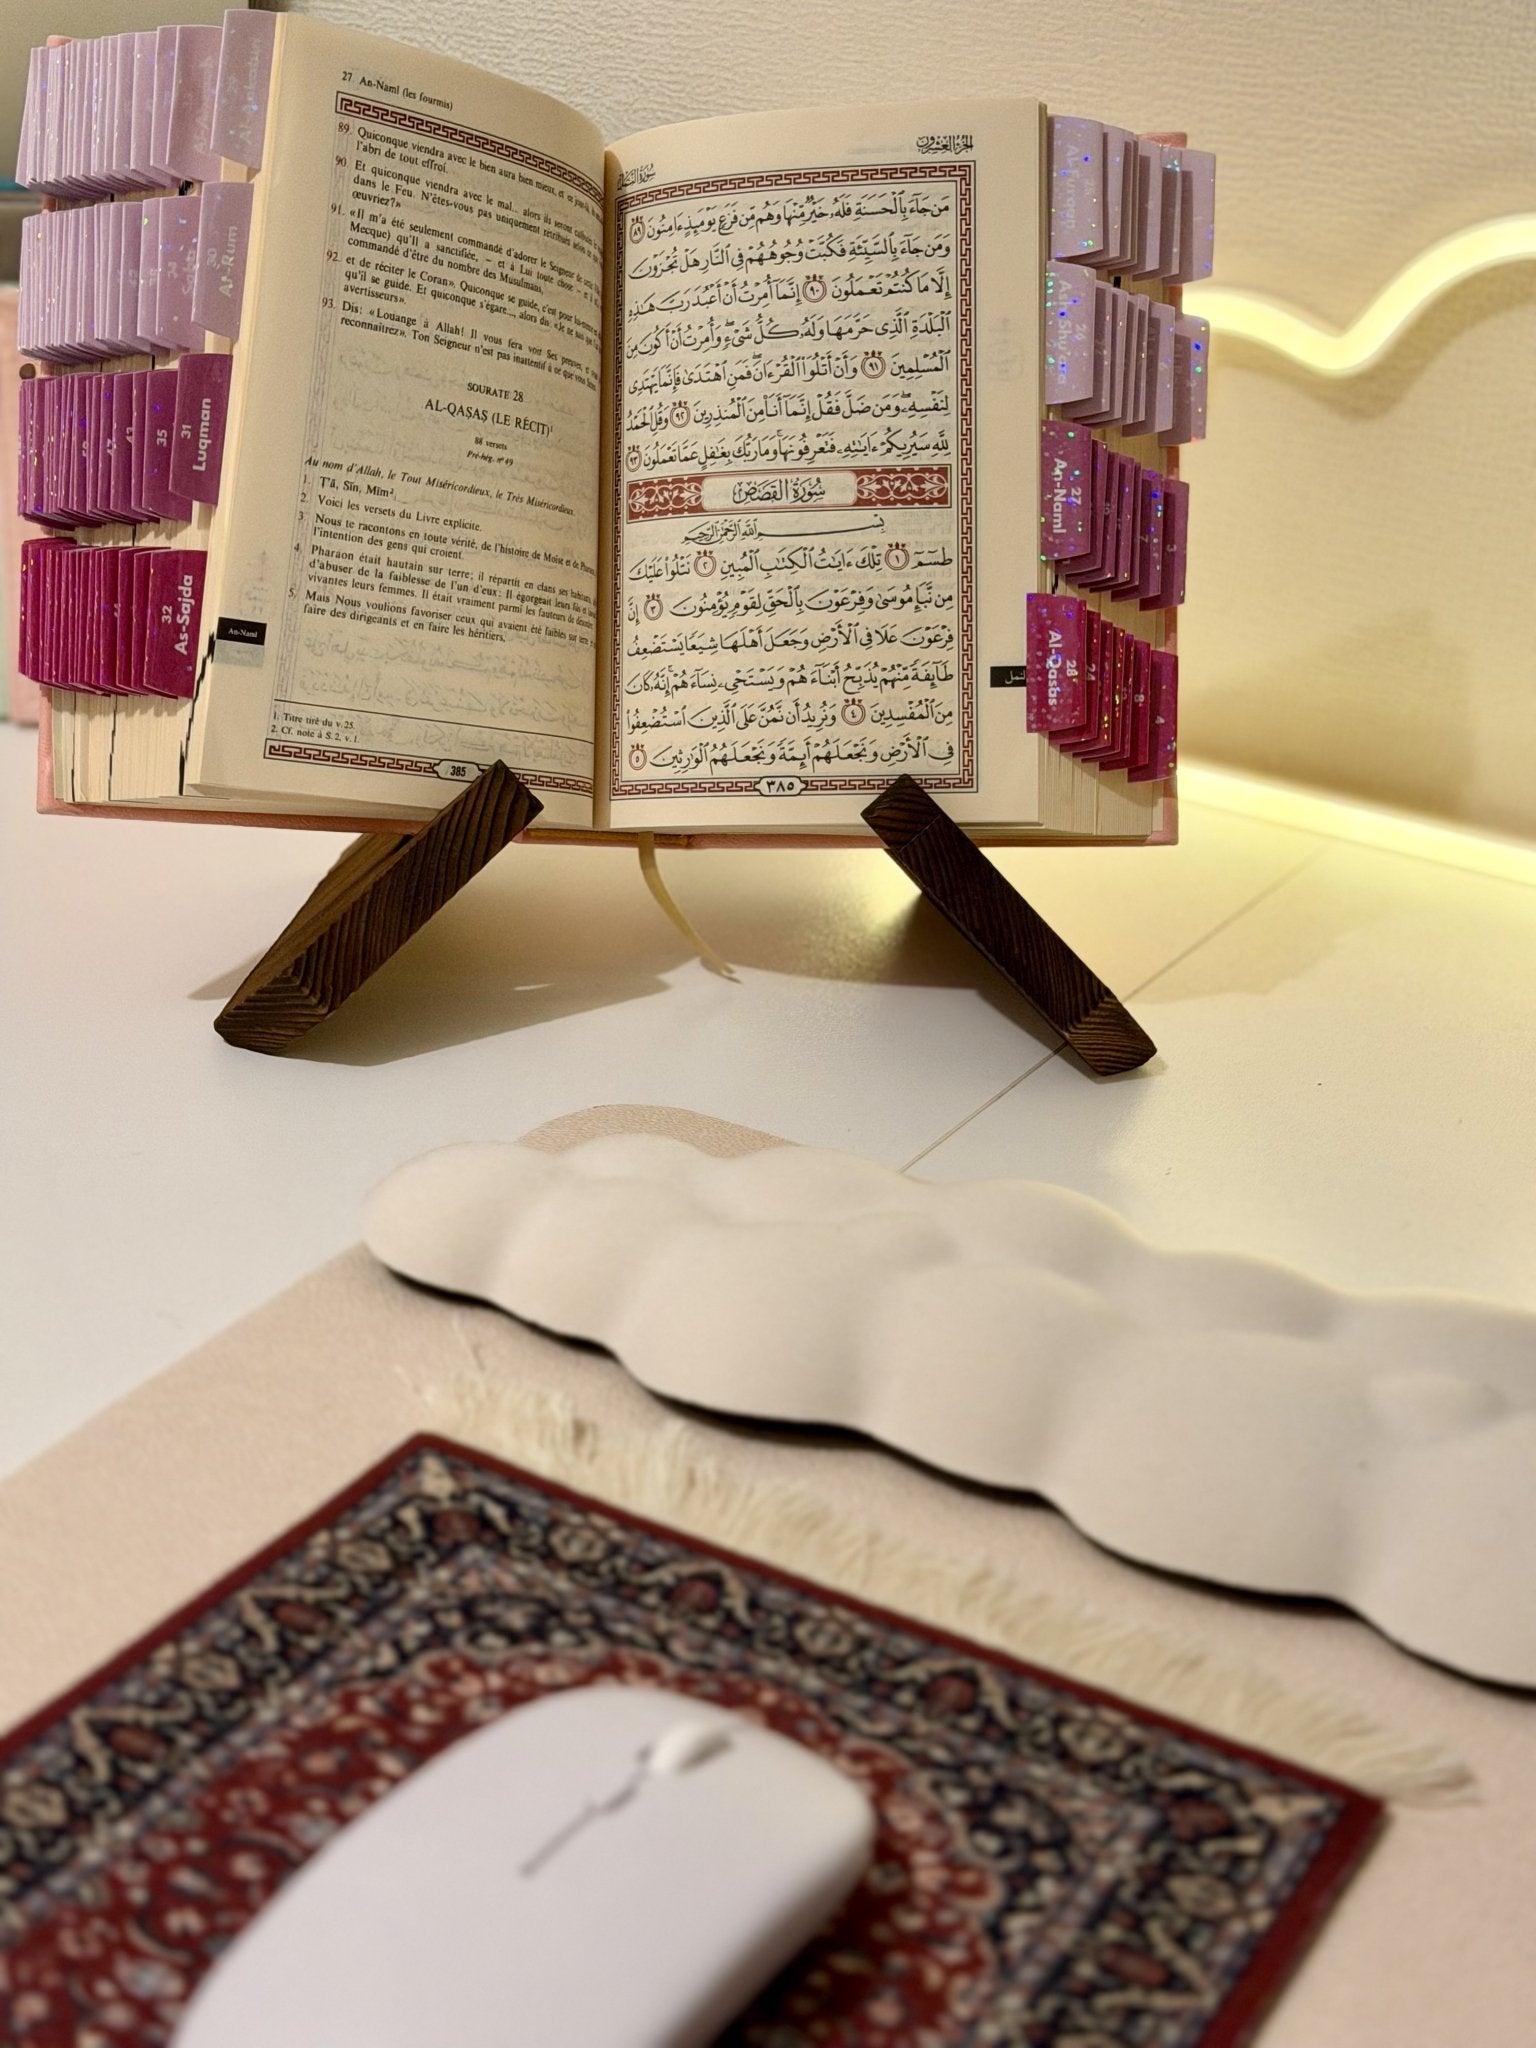 27 An-Naml (les fourmis)
89. Quiconque viendra avec le bien aura bien mieux, et ce jour-là, ils
l'abri de tout effroi.
90. Et quiconque viendra avec le mal... alors ils seront culbutés le
dans le Feu. N'êtes-vous pas uniquement rétribués selon ce que
œuvriez?»
91. «Il m'a été seulement commandé d'adorer le Seigneur de cette
Mecque) qu'Il a sanctifiée, – et à Lui toute chose – et il m'a
commandé d'être du nombre des Musulmans,
92. et de réciter le Coran». Quiconque se guide, c'est pour lui-même
qu'il se guide. Et quiconque s'égare..., alors dis: «Je ne suis que
avertisseurs».
93. Dis: «Louange à Allah! Il vous fera voir Ses preuves, et vous
reconnaîtrez». Ton Seigneur n'est pas inattentif à ce que vous faites.
SOURATE 28
AL-QAṢAṢ (LE RÉCIT)¹
88 versets
Pré-hég. n° 49
Au nom d'Allah, le Tout Miséricordieux, le Très Miséricordieux.
1. Ṭ'ā, Sīn, Mīm².
2. Voici les versets du Livre explicite.
3. Nous te racontons en toute vérité, de l'histoire de Moïse et de Pharaon,
l'intention des gens qui croient.
4. Pharaon était hautain sur terre; il répartit en clans ses habitants,
d'abuser de la faiblesse de l'un d'eux: Il égorgeait leurs fils et laissait
vivantes leurs femmes. Il était vraiment parmi les fauteurs de désordre.
5. Mais Nous voulions favoriser ceux qui avaient été faibles sur terre
faire des dirigeants et en faire les héritiers,
1. Titre tiré du v. 25.
2. Cf. note à S. 2, v. 1.
385
An-Naml
الجزء العشرون
سورة النمل
مَن جَآءَ بِٱلْحَسَنَةِ فَلَهُۥ خَيْرٌ مِّنْهَا وَهُم مِّن فَزَعٍ يَوْمَئِذٍ ءَامِنُونَ ٨٩
وَمَن جَآءَ بِٱلسَّيِّئَةِ فَكُبَّتْ وُجُوهُهُمْ فِى ٱلنَّارِ هَلْ تُجْزَوْنَ
إِلَّا مَا كُنتُمْ تَعْمَلُونَ ٩٠ إِنَّمَآ أُمِرْتُ أَنْ أَعْبُدَ رَبَّ هَٰذِهِ
ٱلْبَلْدَةِ ٱلَّذِى حَرَّمَهَا وَلَهُۥ كُلُّ شَىْءٍ وَأُمِرْتُ أَنْ أَكُونَ مِنَ
ٱلْمُسْلِمِينَ ٩١ وَأَنْ أَتْلُوَا۟ ٱلْقُرْءَانَ فَمَنِ ٱهْتَدَىٰ فَإِنَّمَا يَهْتَدِى
لِنَفْسِهِۦ وَمَن ضَلَّ فَقُلْ إِنَّمَآ أَنَا۠ مِنَ ٱلْمُنذِرِينَ ٩٢ وَقُلِ ٱلْحَمْدُ
لِلَّهِ سَيُرِيكُمْ ءَايَٰتِهِۦ فَتَعْرِفُونَهَا وَمَا رَبُّكَ بِغَٰفِلٍ عَمَّا تَعْمَلُونَ ٩٣
سُورَةُ القَصَصِ
بِسْمِ ٱللَّهِ ٱلرَّحْمَٰنِ ٱلرَّحِيمِ
طسٓمٓ ١ تِلْكَ ءَايَٰتُ ٱلْكِتَٰبِ ٱلْمُبِينِ ٢ نَتْلُوا۟ عَلَيْكَ
مِن نَّبَإِ مُوسَىٰ وَفِرْعَوْنَ بِٱلْحَقِّ لِقَوْمٍ يُؤْمِنُونَ ٣ إِنَّ
فِرْعَوْنَ عَلَا فِى ٱلْأَرْضِ وَجَعَلَ أَهْلَهَا شِيَعًا يَسْتَضْعِفُ
طَآئِفَةً مِّنْهُمْ يُذَبِّحُ أَبْنَآءَهُمْ وَيَسْتَحْىِۦ نِسَآءَهُمْ إِنَّهُۥ كَانَ
مِنَ ٱلْمُفْسِدِينَ ٤ وَنُرِيدُ أَن نَّمُنَّ عَلَى ٱلَّذِينَ ٱسْتُضْعِفُوا۟
فِى ٱلْأَرْضِ وَنَجْعَلَهُمْ أَئِمَّةً وَنَجْعَلَهُمُ ٱلْوَٰرِثِينَ ٥
٣٨٥
النمل
30 Ar-Rum
31 Luqman
35
43
32 As-Sajda
25 Al-Furqan
26 Ash-Shu'ara
27 An-Naml
7
3
28 Al-Qasas
24
8
4